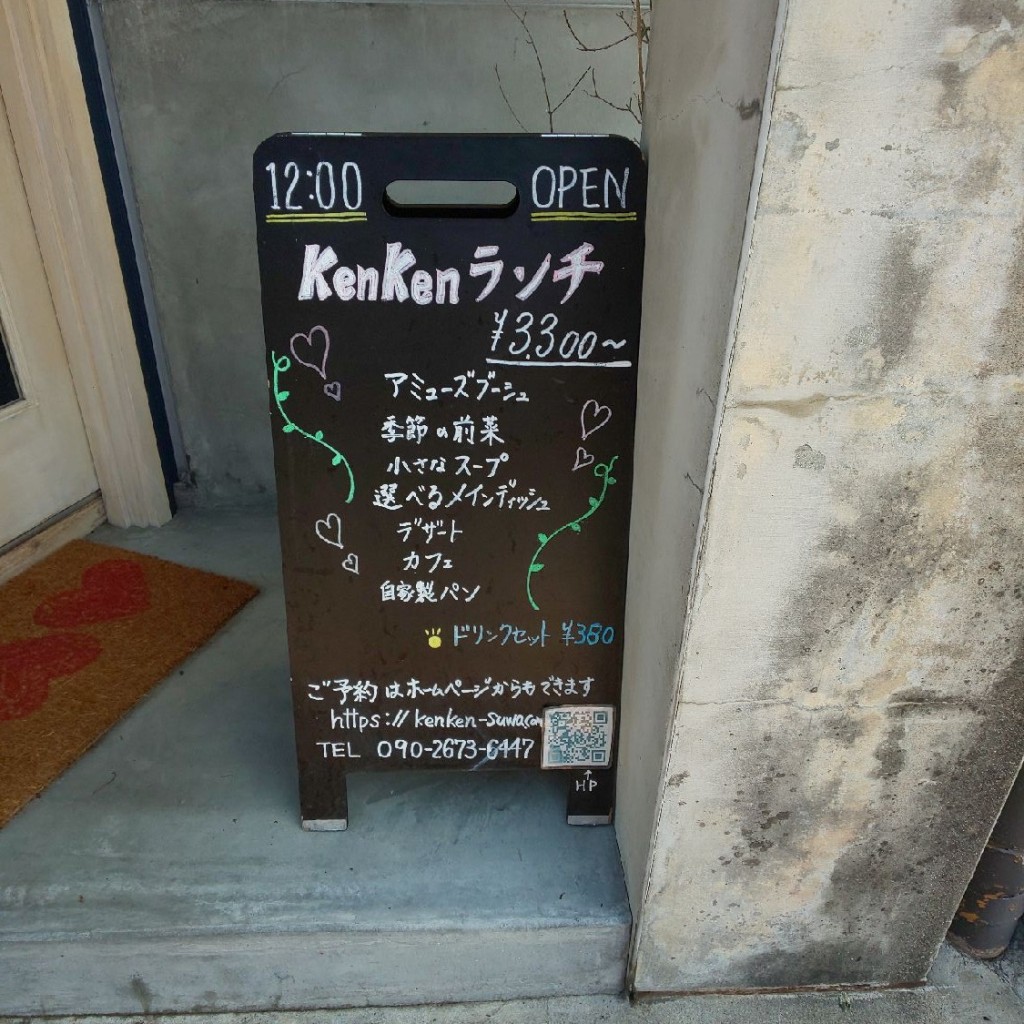 12:00 OPEN
KenKenランチ
¥3,300～
アミューズブーシュ
季節の前菜
小さなスープ
選べるメインディッシュ
デザート
カフェ
自家製パン
ドリンクセット ¥380
ご予約はホームページからもできます
https://kenken-suwa.com
TEL 090-2673-6447
↑
HP